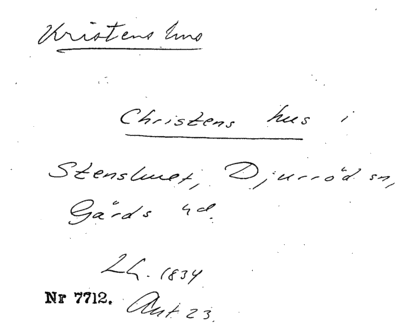 Kristens hus
Christens hus i
Stenshuet, Djurröd sn,
Gärds hd.
Lh. 1834
Nr 7712. Ant 23.